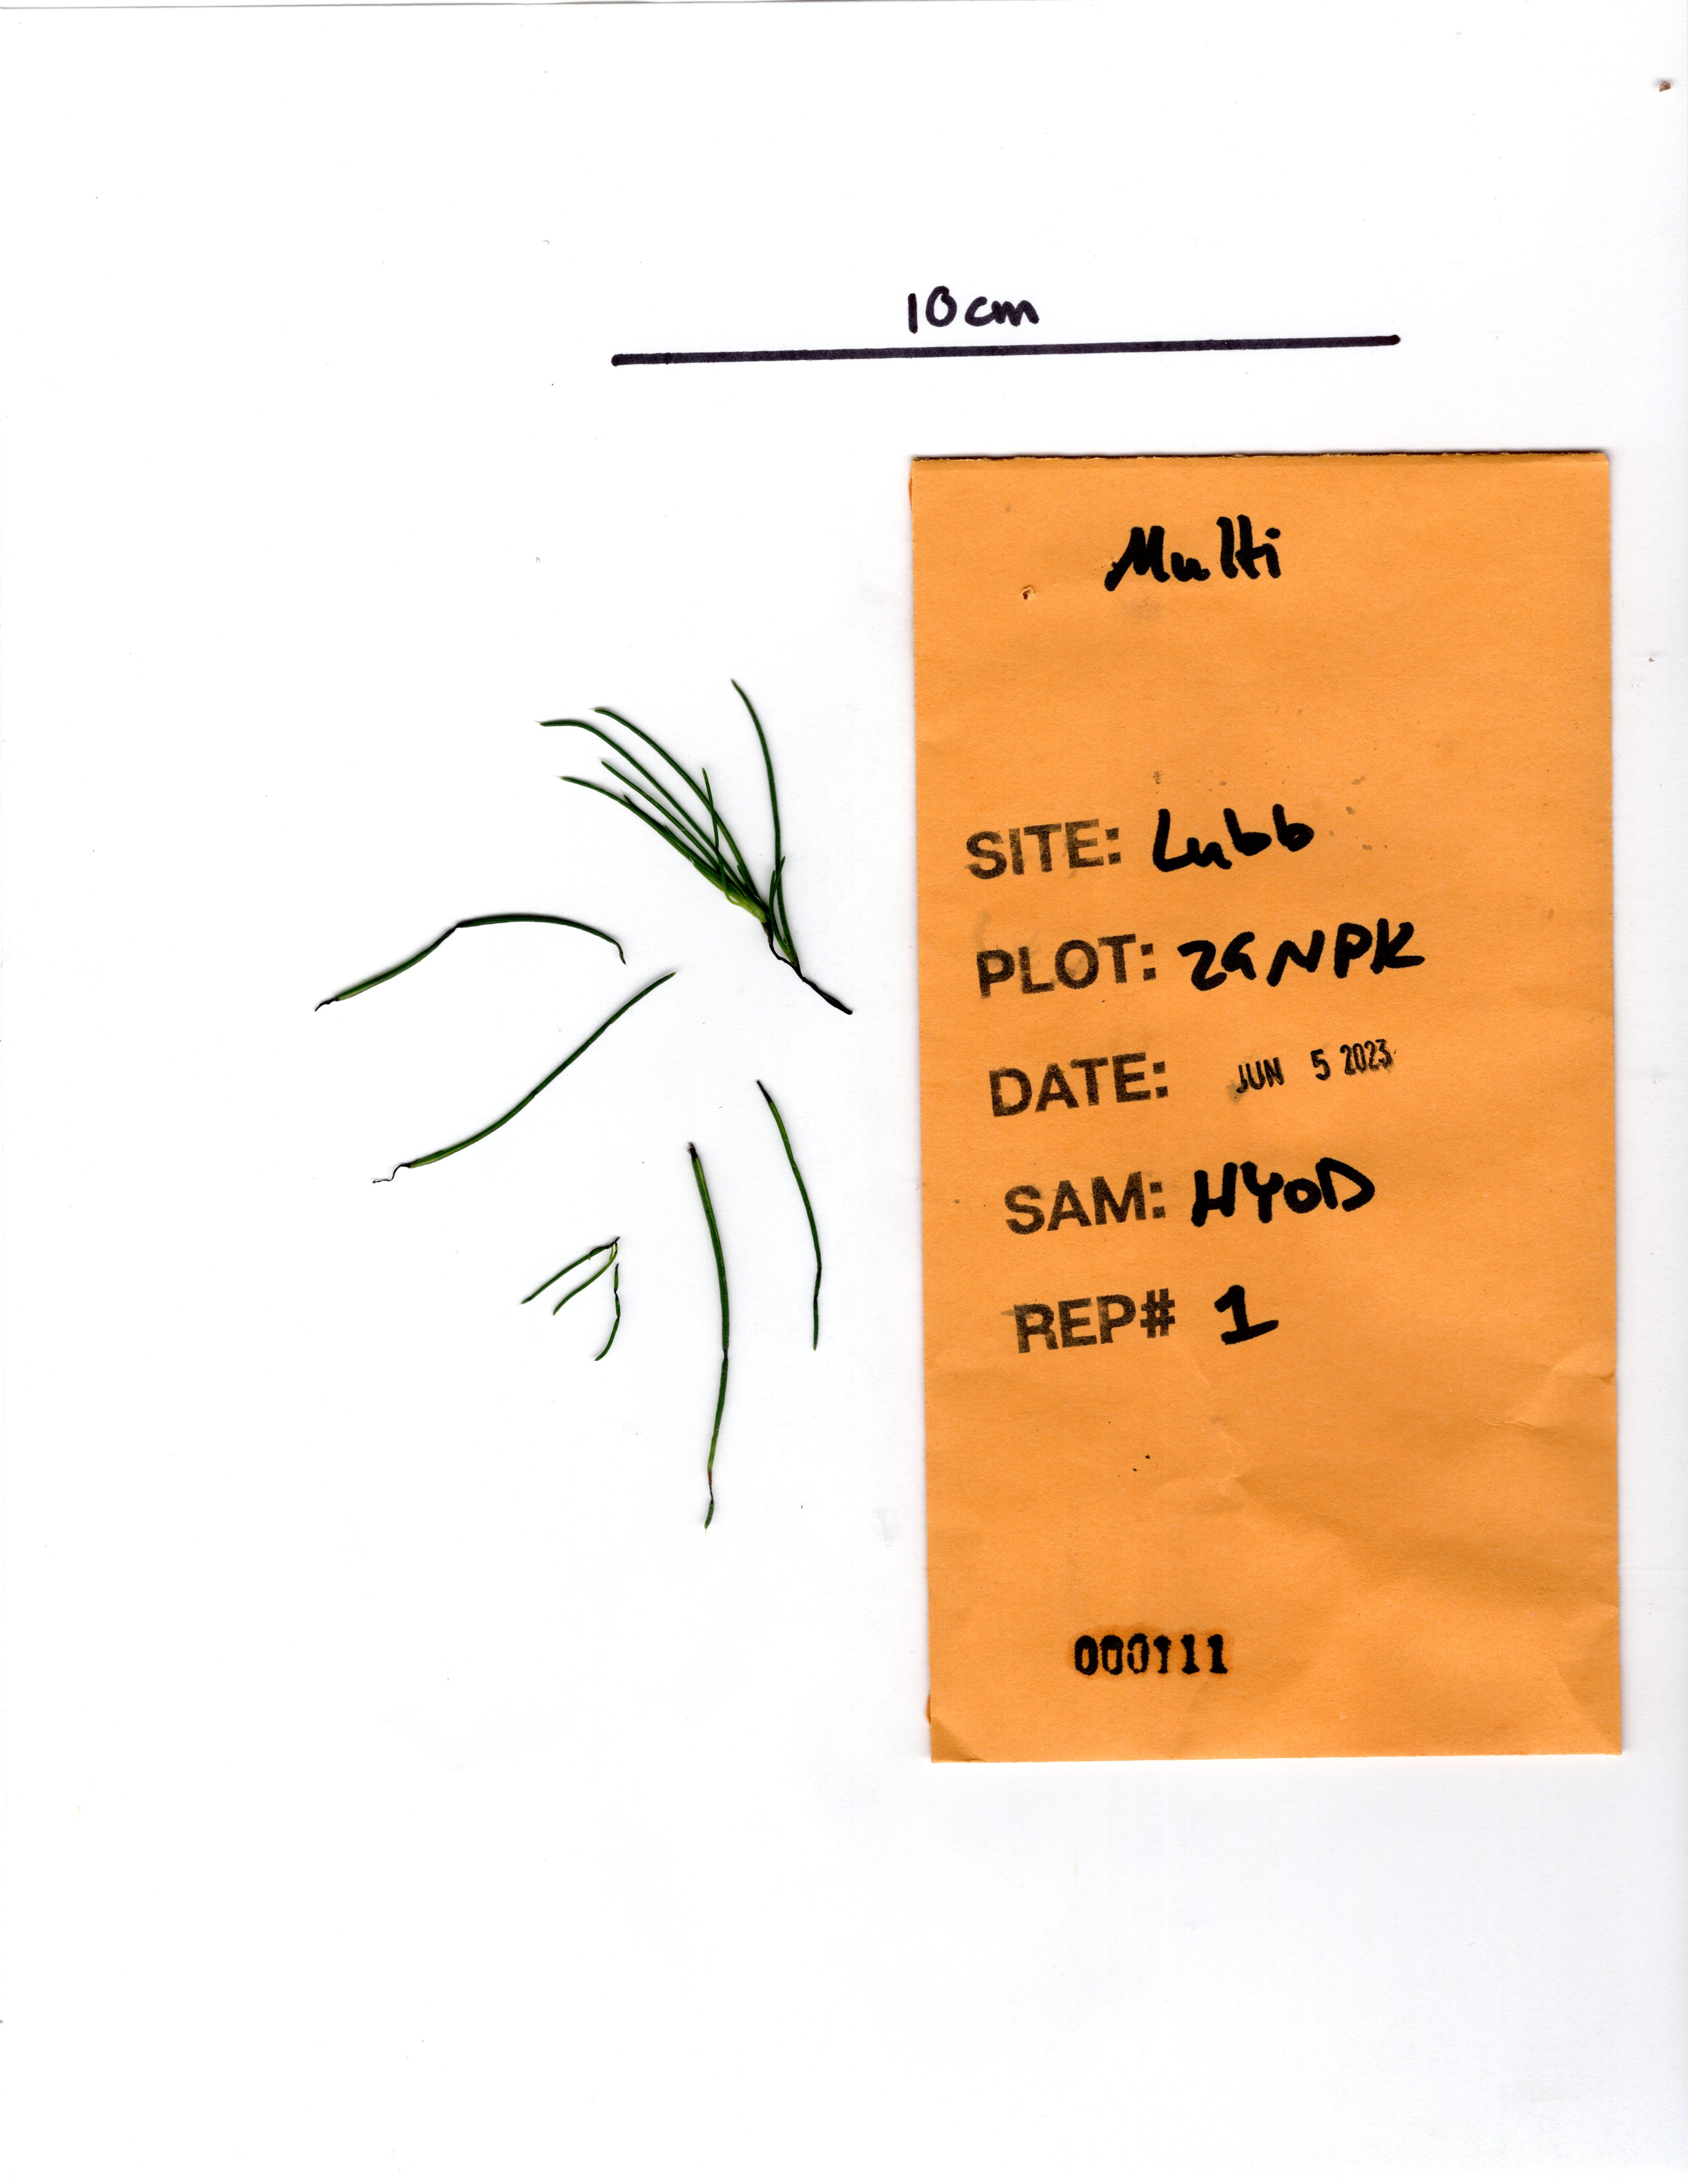 10cm
Multi
SITE: Lubb
PLOT: 29NPK
DATE: JUN 5 2023
SAM: HYOD
REP# 1
000111